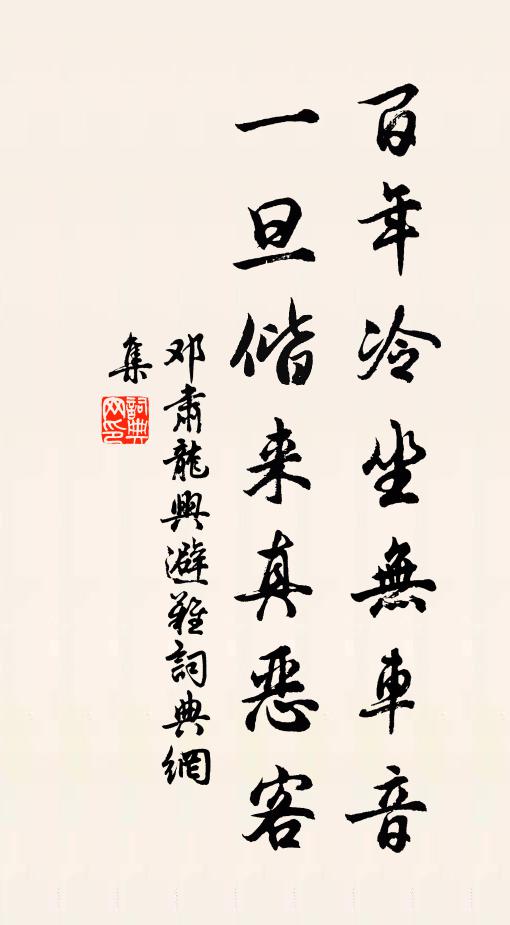 百年冷坐無車音
一旦偕来真恶客
邓肅龍興避難詞典網
集
詞典
网印